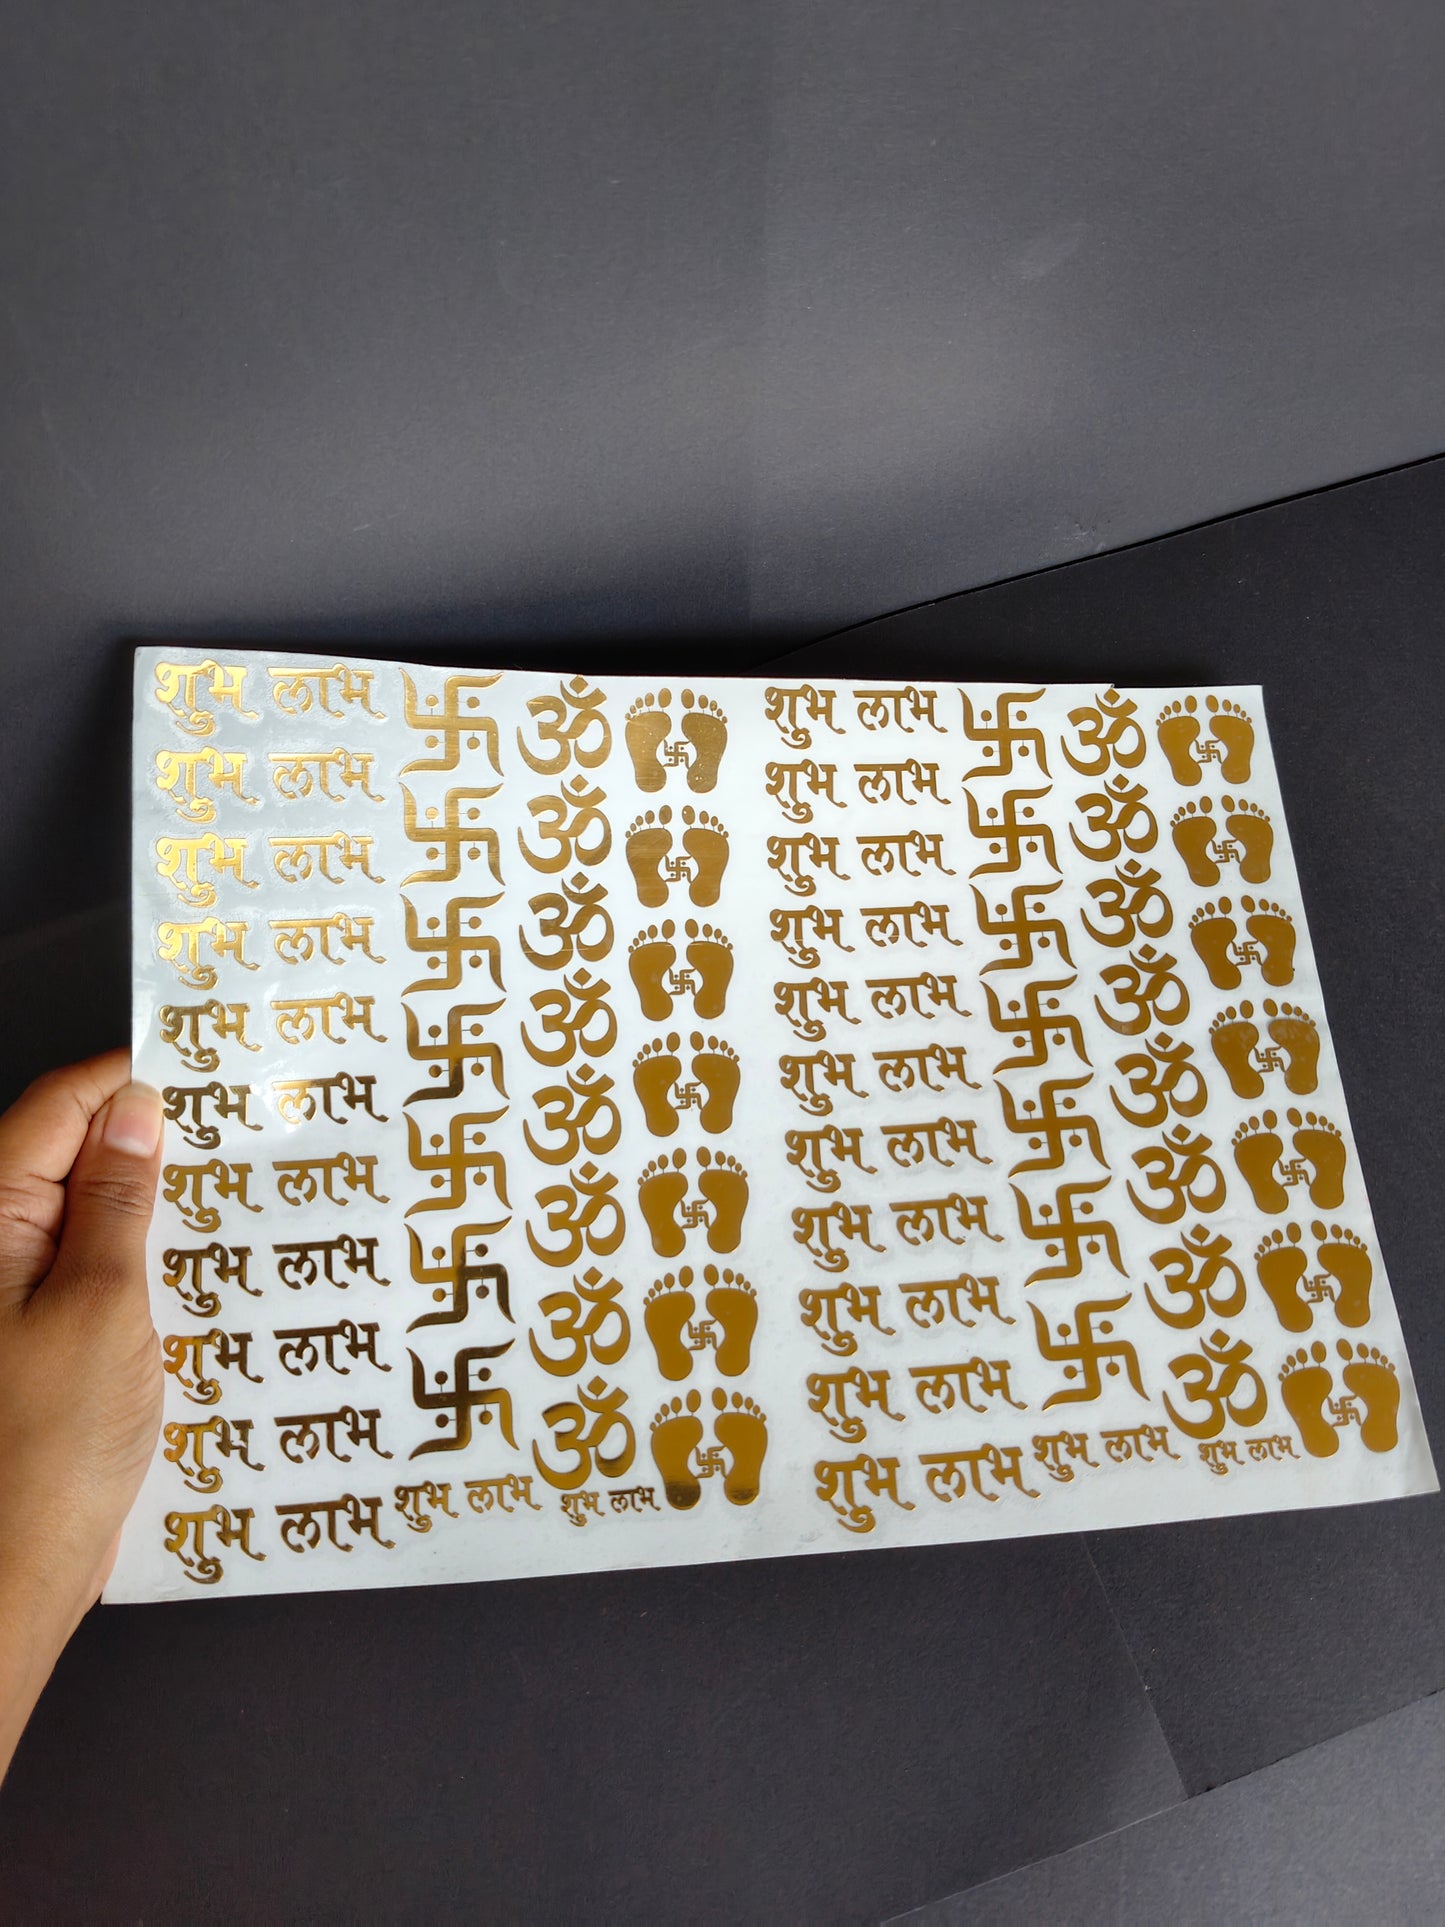 शुभ लाभ
शुभ लाभ
शुभ लाभ
शुभ लाभ
शुभ लाभ
शुभ लाभ
शुभ लाभ
शुभ लाभ
शुभ लाभ
शुभ लाभ
शुभ लाभ
ॐ
ॐ
ॐ
ॐ
ॐ
ॐ
ॐ
ॐ
शुभ लाभ
शुभ लाभ
शुभ लाभ
शुभ लाभ
शुभ लाभ
शुभ लाभ
शुभ लाभ
शुभ लाभ
शुभ लाभ
शुभ लाभ
शुभ लाभ
शुभ लाभ
शुभ लाभ
ॐ
ॐ
ॐ
ॐ
ॐ
ॐ
ॐ
ॐ
शुभ लाभ
शुभ लाभ